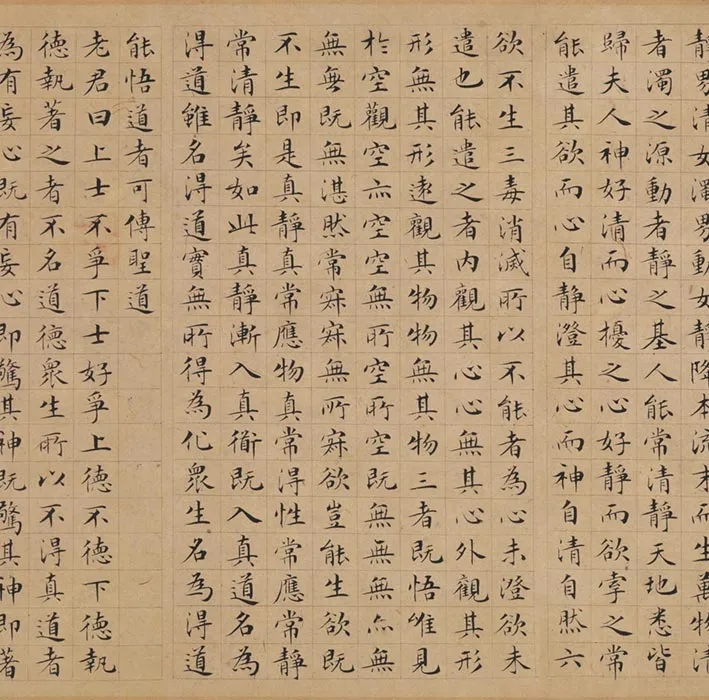 靜男清女濁男動女靜降本流末而生萬物清
者濁之源動者靜之基人能常清靜天地悉皆
歸夫人神好清而心擾之心好靜而欲牽之常
能遣其欲而心自靜澄其心而神自清自然六
欲不生三毒消滅所以不能者為心未澄欲未
遣也能遣之者內觀其心心無其心外觀其形
形無其形遠觀其物物無其物三者既悟唯見
於空觀空亦空空無所空所空既無無無亦無
無無既無湛然常寂寂無所寂欲豈能生欲既
不生即是真靜真常應物真常得性常應常靜
常清靜矣如此真靜漸入真衜既入真道名為
得道雖名得道實無所得為化衆生名為得道
能悟道者可傳聖道
老君曰上士不爭下士好爭上德不德下德執
德執著之者不名道德衆生所以不得真道者
為有妄心既有妄心即驚其神既驚其神即著